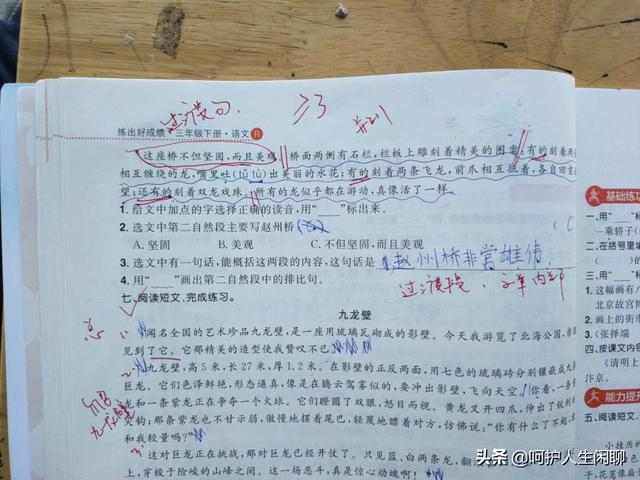 过渡句
练出好成绩 三年级下册·语文 R
这座桥不但坚固,而且美观。桥面两侧有石栏,栏板上雕刻着精美的图案:有的刻着两
相互缠绕的龙,嘴里吐(tǔ tù)出美丽的水花;有的刻着两条飞龙,前爪相互抵着,各自回首
望;还有的刻着双龙戏珠。所有的龙似乎都在游动,真像活了一样。
1. 给文中加点的字选择正确的读音,用“____”标出来。
2. 选文中第二自然段主要写赵州桥
A. 坚固 B. 美观 C. 不但坚固,而且美观
3. 选文中有一句话,能概括这两段的内容,这句话是
赵州桥非常雄伟
4. 用“____”画出第二自然段中的排比句。
过渡段
七、阅读短文,完成练习。
九龙壁
总 1.
闻名全国的艺术珍品九龙壁,是一座用琉璃瓦砌成的影壁。今天我游览了北海公园,亲
见到了它。它那精美的造型使我赞叹不已。
2.
九龙壁,高5米,长27米,厚1.2米。在影壁的正反两面,用七色的琉璃砖分别镶嵌成九
巨龙。它们色泽鲜艳,形态逼真,像是在腾云驾雾似的,要冲出影壁,飞向天空。你看,一条
龙和一条紫龙正在争夺一个火球。它们瞪圆了双眼,怒目而视。黄龙叉开四爪,伸出了锐利
九龙壁
钩;那条紫龙也不甘示弱,傲慢地摆着尾巴,轻蔑地瞧着对方,仿佛说:“你有什么了不起,
和我较量吗?”
3.
这对巨龙正在挑战,那对巨龙已经开仗了。只见蓝、白两条龙,翻
上,穿梭于险峻的山峰之间。这一场恶斗,真是惊心动魄啊!
基础练习
一、用“
一乘轿子(
二、在括号里
三、用“
1. 这幅画有八
北京故宫博
2. 画上的街市
3. (张择端
四、按课文内容
《清明上
汴京。
能力提升
五、阅读短文
小扶历
头条 @呵护人生闲聊